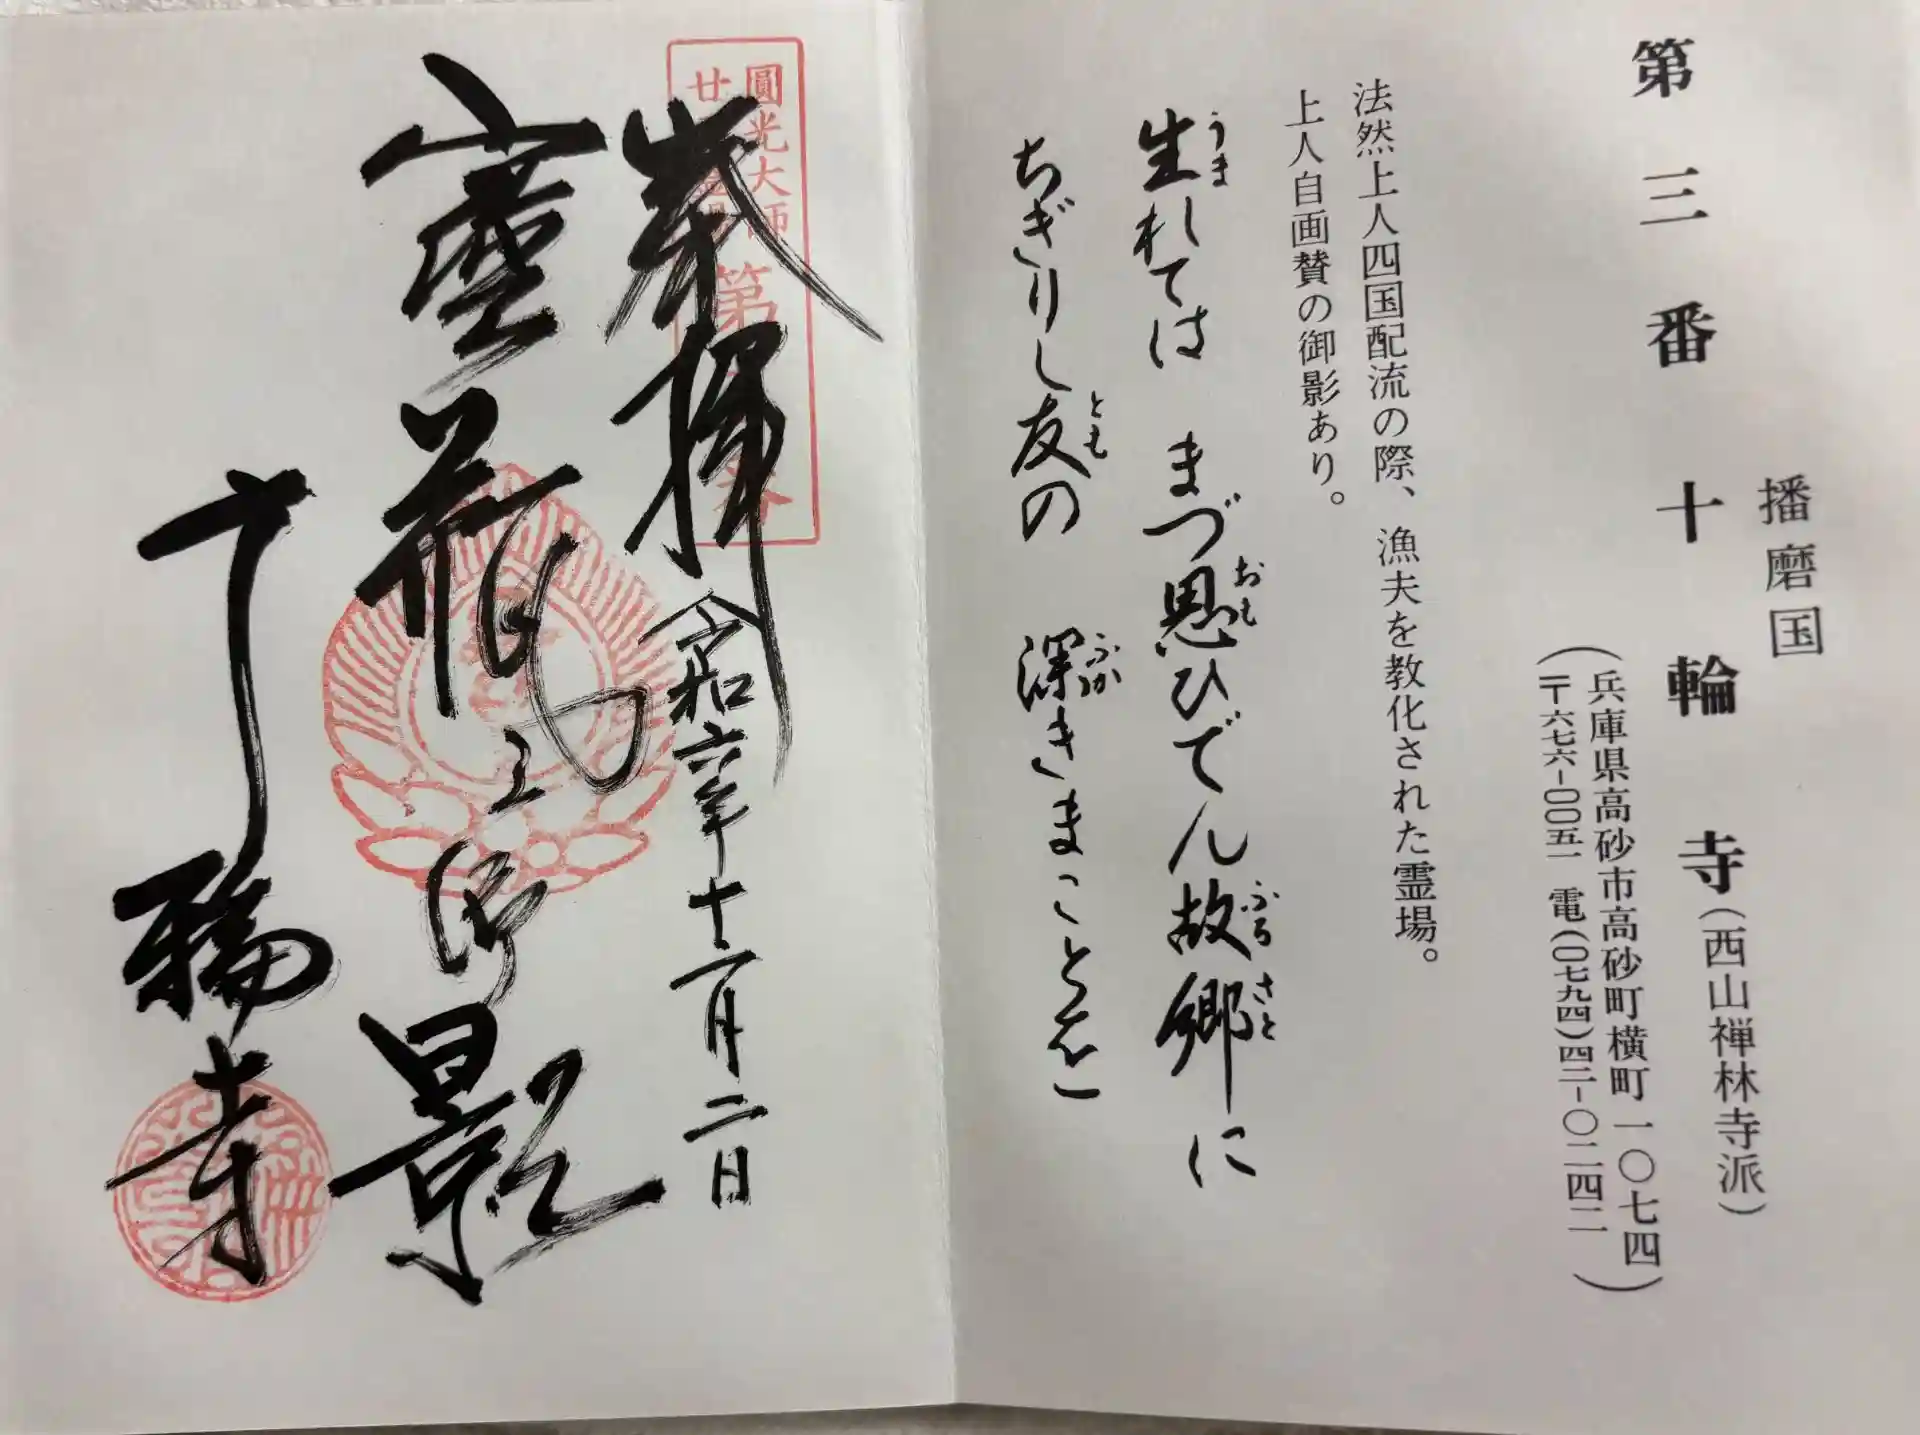 第三番十輪寺(西山禅林寺派)
播磨国
(兵庫県高砂市高砂町横町一〇七四
〒六七六-〇〇五一 電(〇七九四)四二-〇二四二)
法然上人四国配流の際、漁夫を教化された霊場。
上人自画賛の御影あり。
生れては まづ思ひでん故郷に
うま おも ふるさと
ちぎりし友の 深きまことを
とも ふか
圓光大師
廿
第
番
奉拝 令和六年十一月二日
御影
十輪寺